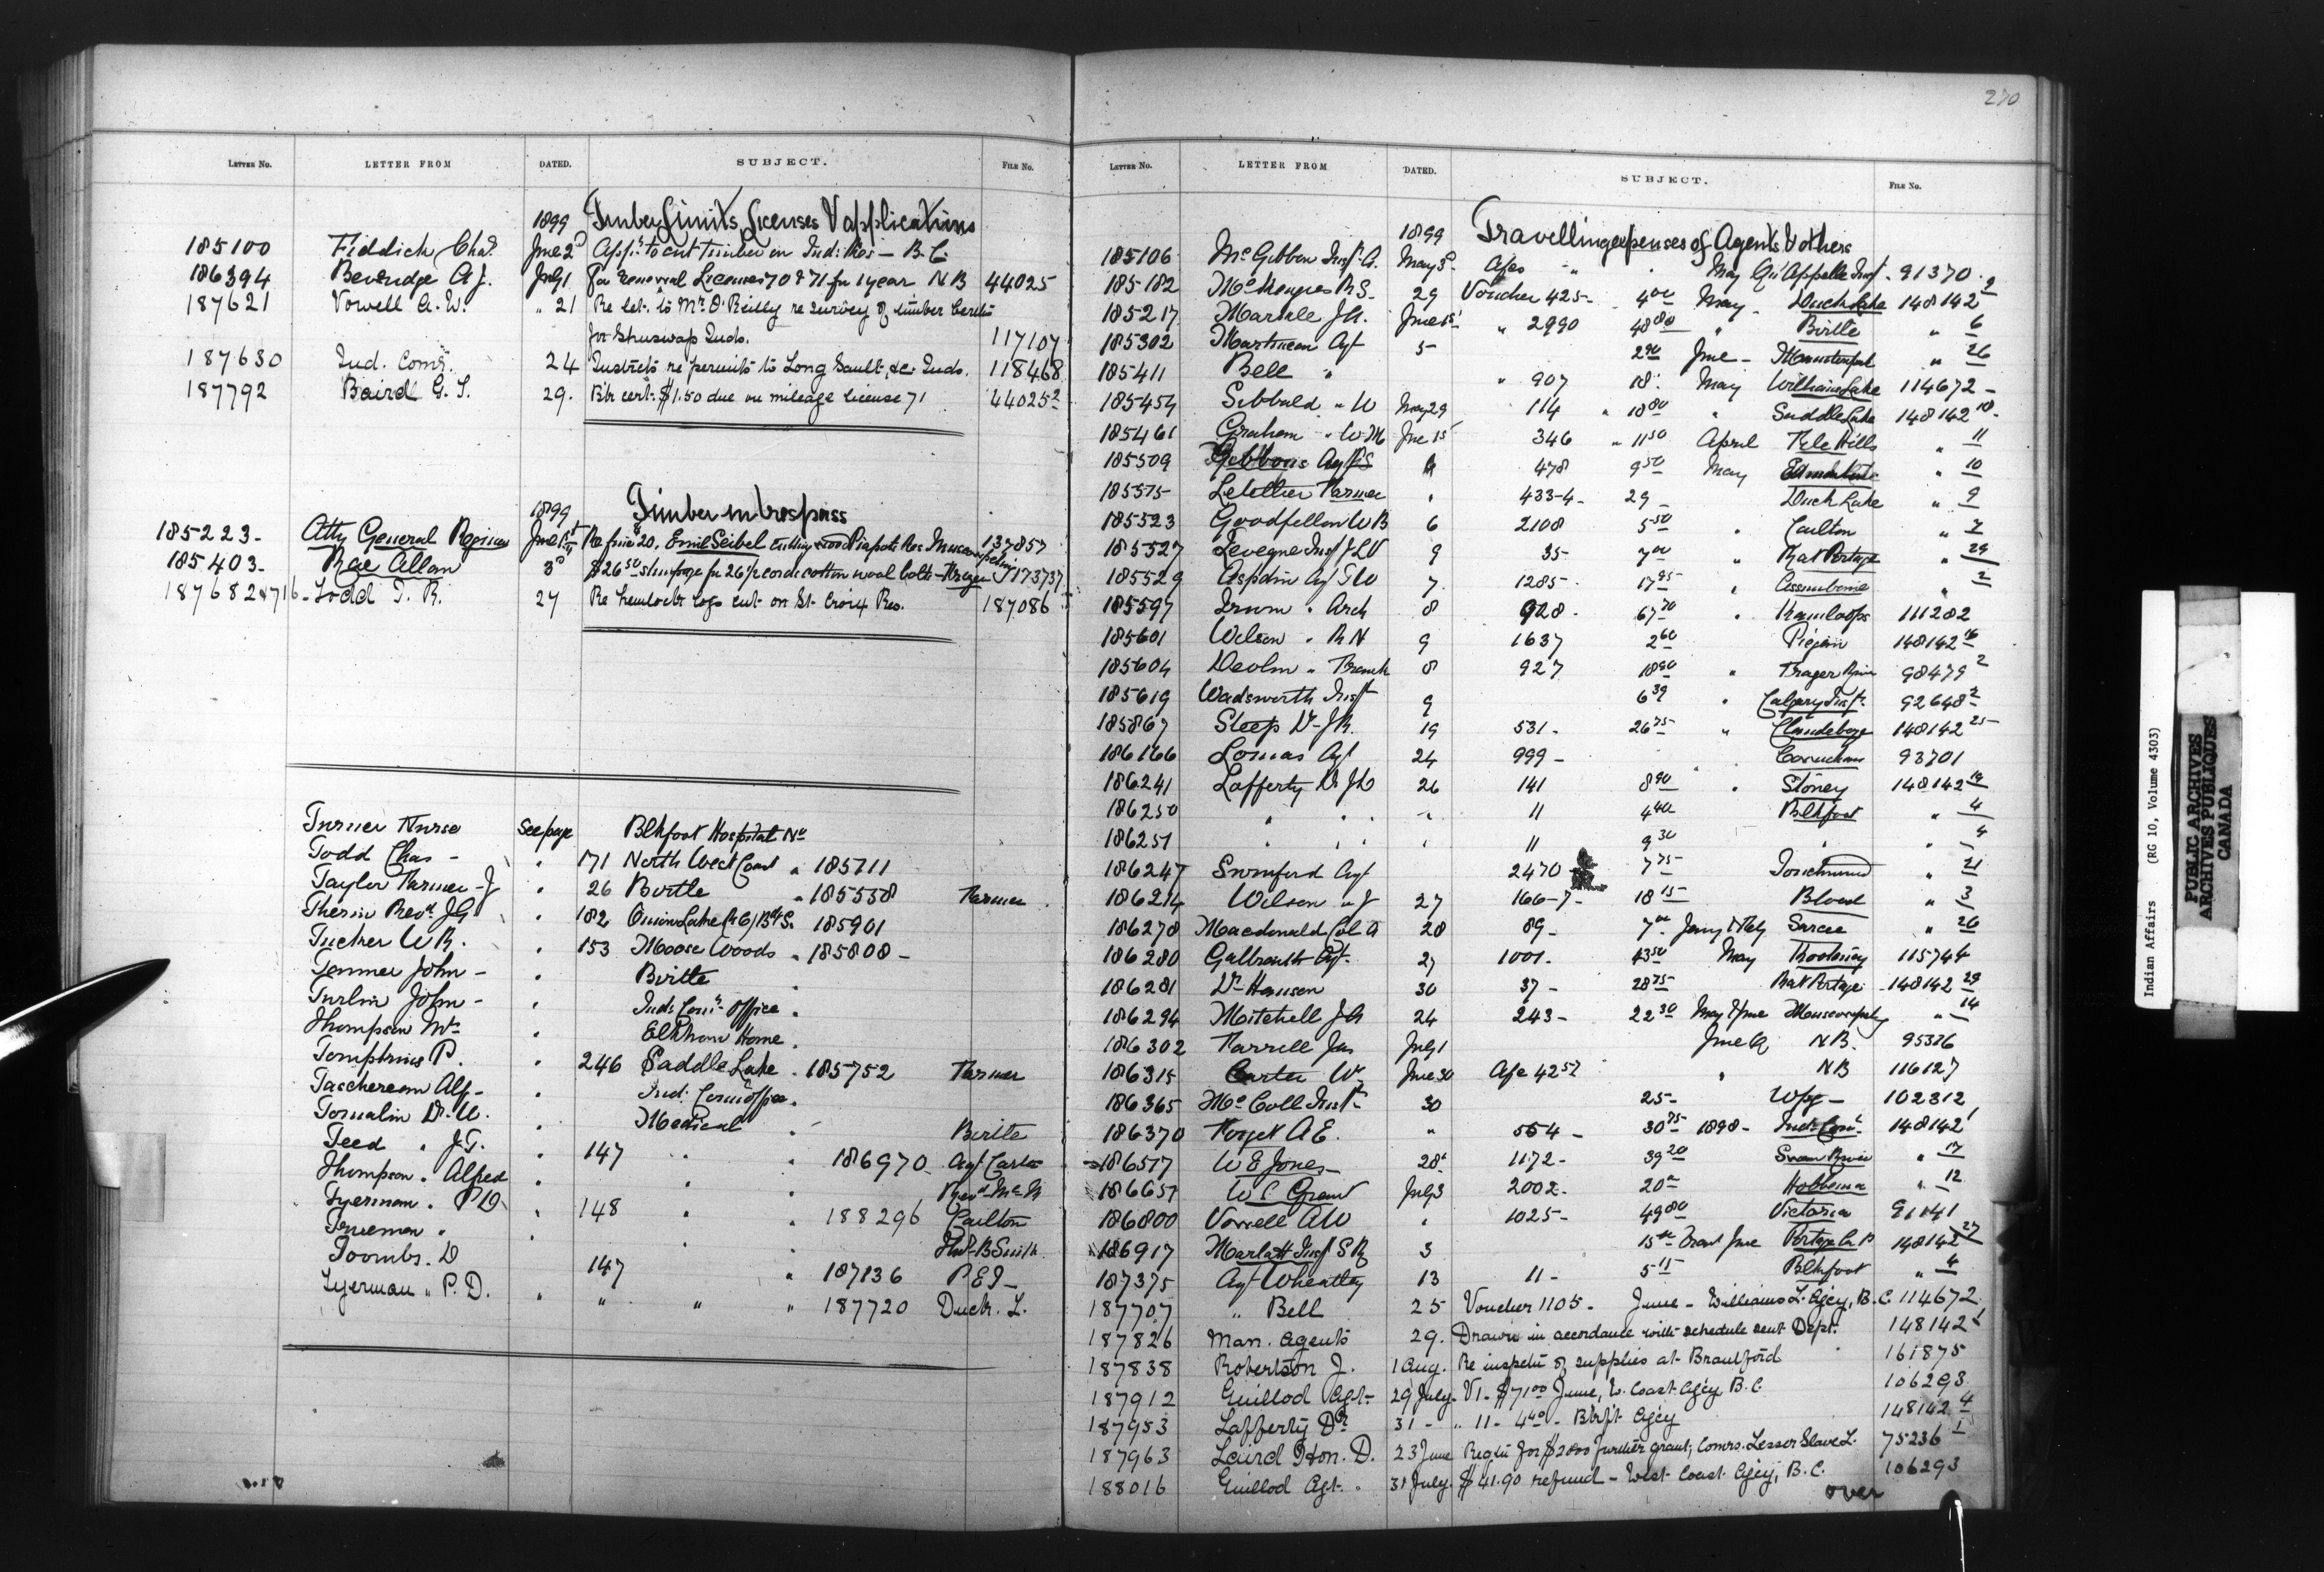 LETTER NO. LETTER FROM DATED. SUBJECT. FILE NO.
1899 Timber Limits, Licenses & applications
185100 Fiddich Chas. June 2d Appn. to cut timber on Ind: Res - B.C.
186394 Beveridge A J. July 1 For renewal Licenses 70 & 71 for 1 year N B 44025
187621 Vowell A. W. " 21 Re let. to Mr. O'Reilly re survey of timber
for Shuswap Inds. 117107
187630 Ind. Comr. 24 Instrcts re permits to Long Sault, &c. Inds. 118468
187792 Baird G. T. 29. $1.50 due on mileage license 71 44025 2
1899 Timber in trespass
185223- Atty General Regina June 1st Re fine 20. Emil Seibel cutting wood Piapots Res 137857
185403- Rae Allan 3d $26 50 stumpage for 26½ cords cotton wood bolts - Fraser 173737
187682 & 716 - Todd T. R. 27 Re hemlock logs cut on St. Croix Res. 187086
Turner Nurse See page Blkfoot Hospital No
Todd Chas - " 171 North West Coast " 185711
Taylor Farmer - J " 26 Birtle " 185558 Farmer
Therien Revd. J G " 182 Onion Lake R C / Bd S. 185901
Tucker W R. " 153 Moose Woods " 185808 -
Tanner John - " Birtle "
Turlin John - " Ind: Comr. Office "
Thompson Mr " Elkhorn Home "
Tompkins P. " 246 Saddle Lake " 185752 Farmer
Taschereau Alf - " Ind. Comr Office "
Tomalin Dr. " Medical " Birtle
Teed " J. T. 147 " " 186970 Agt Carter
Thompson " Alfred " " "
Tyerman " P D " 148 " " 188296 Carlton
Trueman " " Hnd B Smith
Toombs. D 147 " 187136 P E I -
Tyerman " P. D. " " " " 187720 Duck. L.
270
LETTER NO. LETTER FROM DATED. SUBJECT. FILE NO.
1899 Travelling expenses of Agents & others
185106 McGibbon Inspr A. May 3 May Qu'Appelle Insp. 91370
185182 McKenzie R S. 29 Voucher 425 - 4 00 May - Duck Lake 148142 2
185217 Markle J A. June 1st " 2990 48 80 " Birtle " 6
185302 Martineau Agt 5 2 90 June - Manitowpah " 26
185411 Bell " " 907 18. May Williams Lake 114672 -
185454 Sibbald " W May 29 114 " 10 80 " Saddle Lake 148142 18.
185461 Graham " W M June 15 346 " 11 50 April File Hills " 11
185509 Gibbons Agt 478 9 50 May Edmonton " 10
185575 Letellier Farmer " 433-4 - 29 - Duck Lake " 2
185523 Goodfellow W B 6 2108 5 50 " Carlton " 7
185527 Levegne Insp J L V 9 35 - 7 00 " Rat Portage " 29
185529 Aspdin Agt T W 7. 1285 - 17 95 " Assiniboine " 2
185597 Irwin " Arch 8 928 - 67 70 " Kamloops 111282
185601 Wilson " R N 9 1637 2 60 " Piegan 148142 16
185604 Devlin " Frank 8 927 18 90 " Fraser River 98479 2
185619 Wadsworth Inspr 9 6 39 " Calgary Insp. 92648 2
185867 Steep Dr J R. 19 531 - 26 75 " Clandeboye 148142 25
186166 Lomas Agt 24 999 - " Cowichan 93701
186241 Lafferty Dr J D 26 141 8 90 " Stoney 148142 19
186250 " " " " 11 4 40 Blkfoot " 4
186251 " " " " 11 9 30 " " 4
186247 Swinford Agt 2470 7 75 Touchwood " 21
186214 Wilson " J 27 166-7 - 18 15 Blood " 3
186278 Macdonald Col A 28 89 - 7 00 Jany & Feby Sarcee " 26
186280 Galbraith Agt. 27 1001 - 43 50 May Kootenay 115744
186281 Dr. Hanson 30 37 - 28 75 Rat Portage 148142 29
186294 Mitchell J A 24 243 - 22 30 May & June Muscowpetung " 14
186302 Farrell Jas July 1 June Qr N B. 95336
186315 Carter Wm June 30 42 57 " N B 116127
186365 McColl Inspr 30 25 - Wpg - 102312
186370 Forget A E. " 554 - 30 75 1898 - Ind: Comr. 148142 1
186517 W E Jones 28 1172 - 39 20 Swan River " 17
186651 W S Grant July 3 2002. 20 00 Hobbema " 12
186800 Vowell A W " 1025 - 49 80 Victoria 91141
186917 Marlatt Insp S R 3 15 00 June Portage La P 148142 27
187375 Agt Wheatley 13 11 - 5 15 Blkfoot " 4
187707 " Bell 25 Voucher 1105 - June - Williams L. Agcy, B. C. 114672
187826 Man. Agents 29. Drawn in accordance with schedule sent Dept. 148142 1
187838 Robertson J. 1 Aug. Re inspctn of supplies at Brantford 161875
187912 Guillod Agt - 29 July - V1 - $71 00 June, W. Coast Agcy, B. C. 106293
187953 Lafferty Dr. 31 - " 11 - 4 40 - Blkft Agcy 148142 4
187963 Laird Hon. D. 23 June Reqtn for $2800 further grant; Comrs. Lesser Slave L. 75236 1
188016 Guillod Agt. " 31 July - $41.90 refund - West Coast Agcy, B. C. 106293
over
Indian Affairs (RG 10, Volume 4303)
PUBLIC ARCHIVES
ARCHIVES PUBLIQUES
CANADA